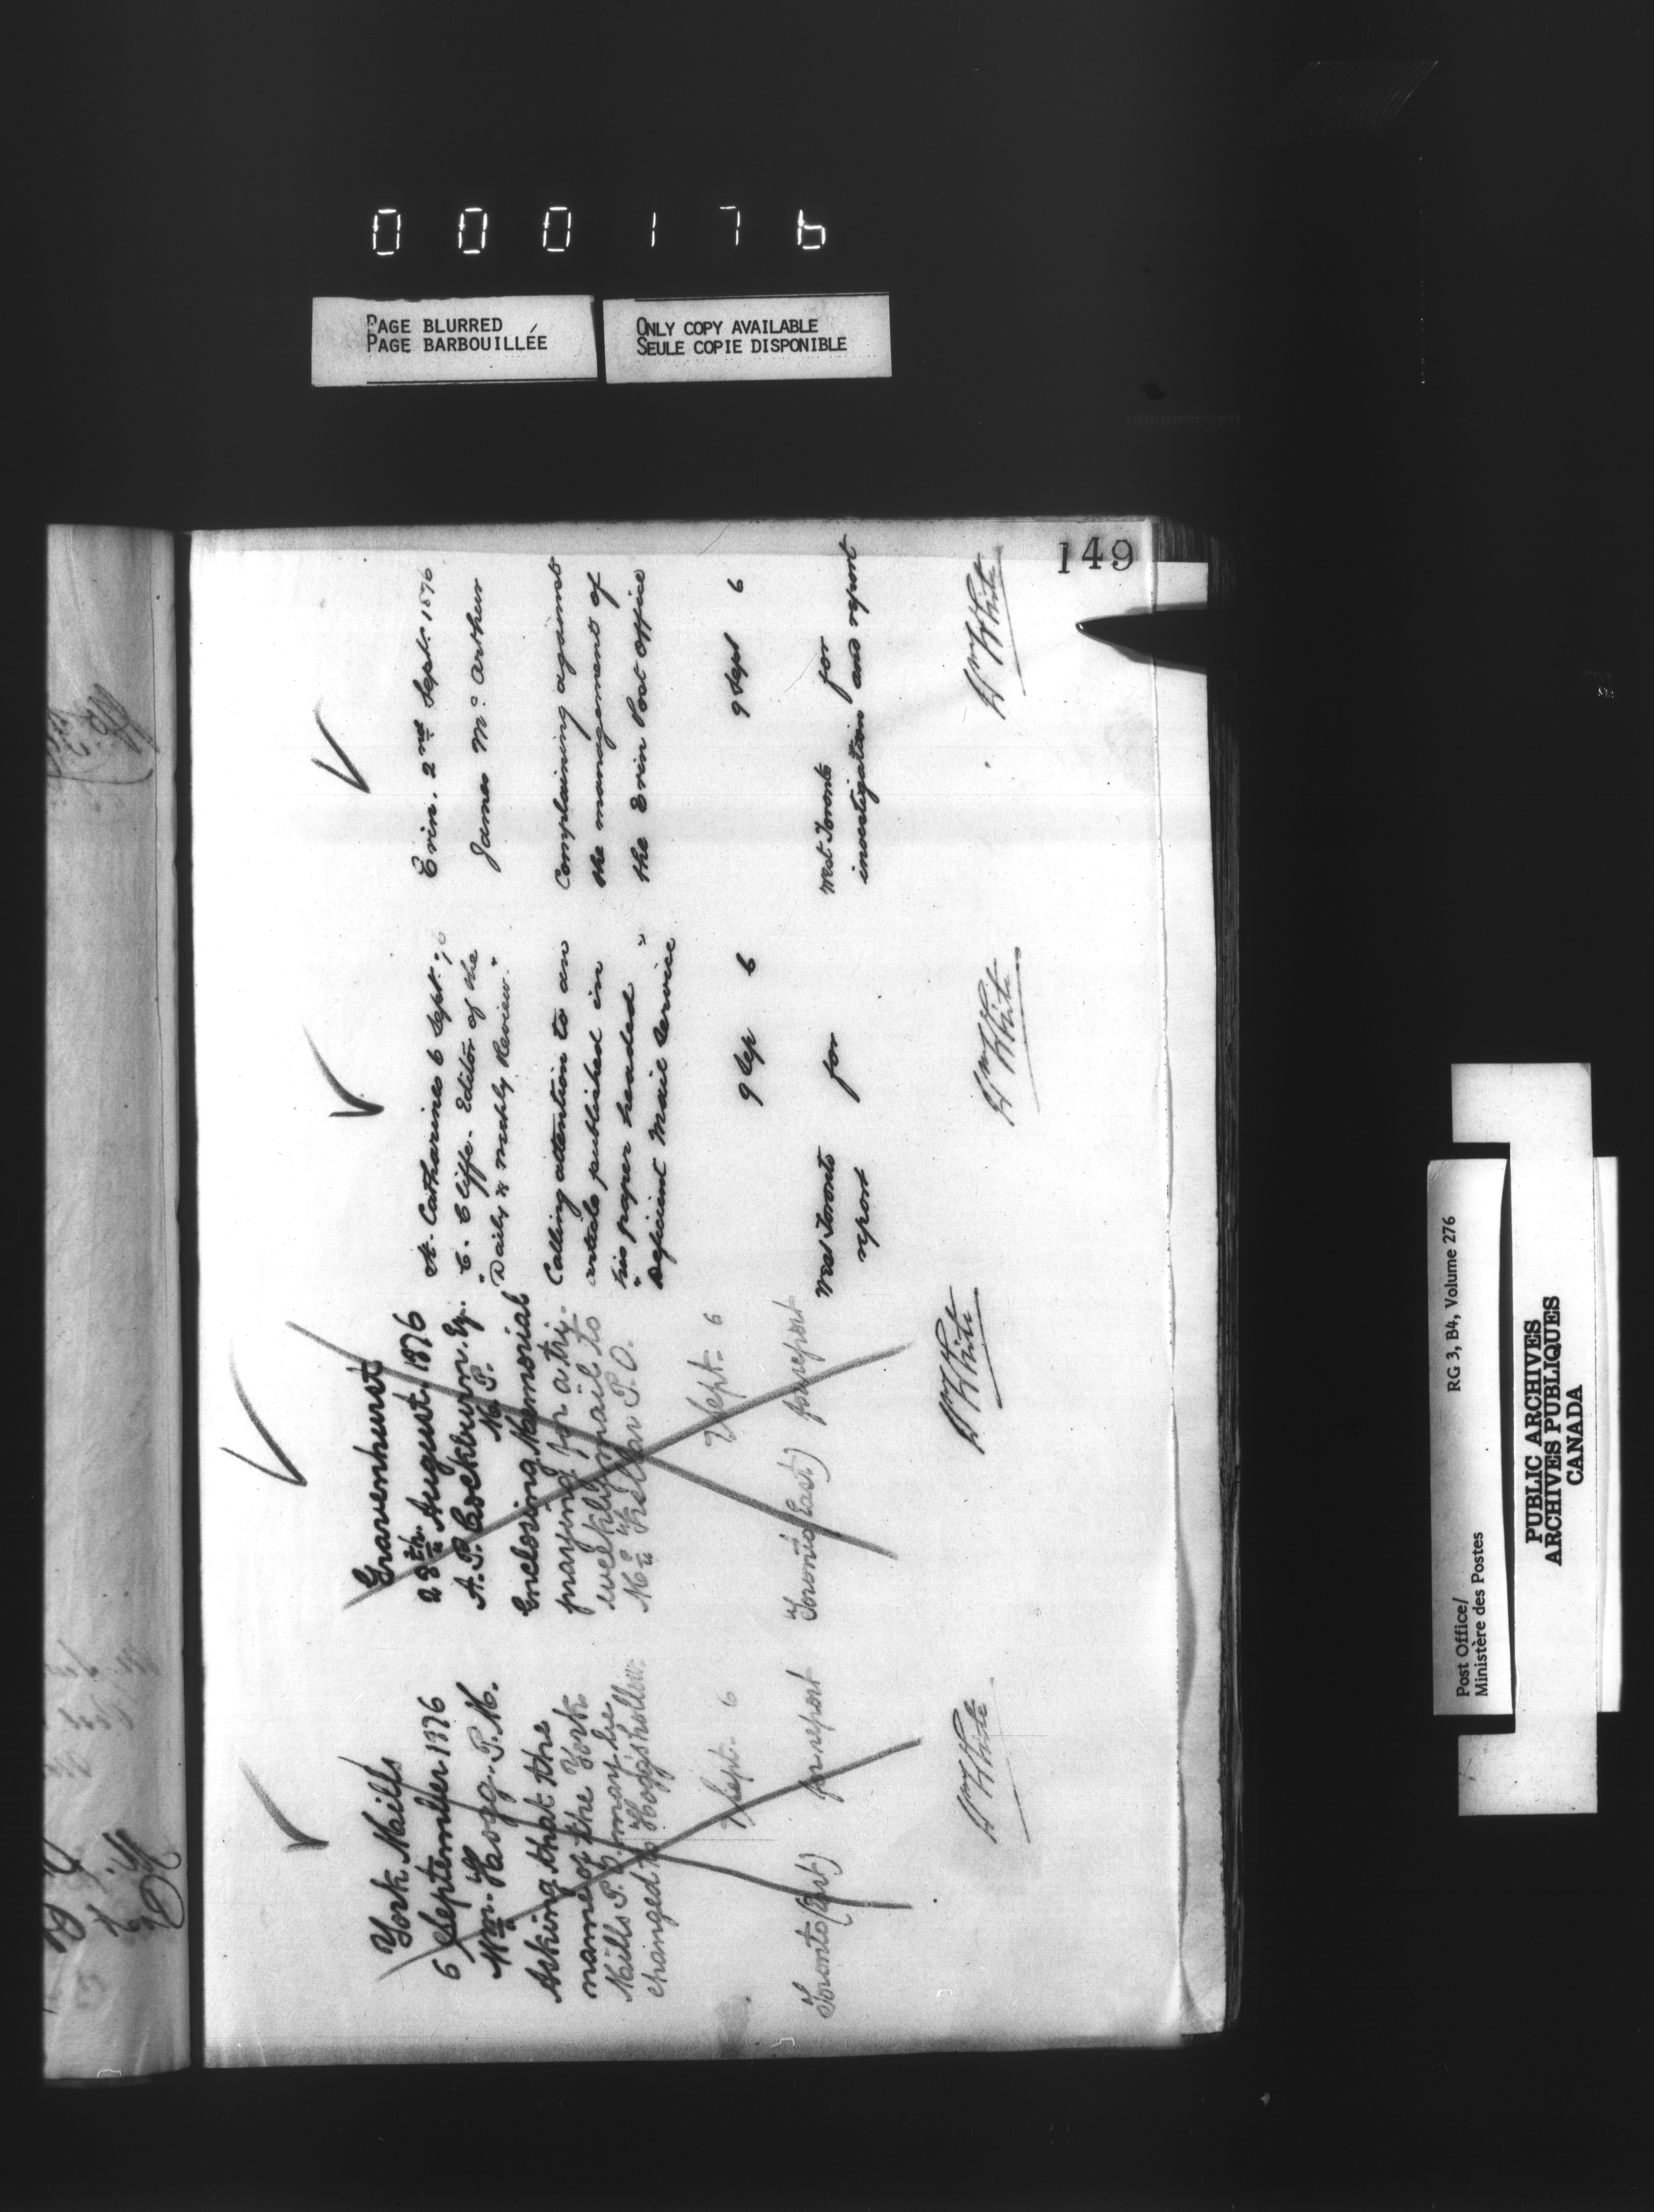 000176
PAGE BLURRED
PAGE BARBOUILLÉE
ONLY COPY AVAILABLE
SEULE COPIE DISPONIBLE
149
York Mills
6 September 1876
Wm. Hogg. P.M.
Asking that the
name of the York
Mills P.O. may be
changed to Hogg's hollow.
7 Sept. 6
Toronto (East) for report
Wm White
Gravenhurst
28th August, 1876
A. P. Cockburn. Esq.
M.P.
Enclosing Memorial
praying for a tri-
weekly mail to
McKellar P.O.
7 Sept. 6
Toronto (East) for report
Wm White
St. Catharines 6 Sept. 76
C. Cliffe. Editor of the
"Daily & Weekly Review."
Calling attention to an
article published in
his paper headed
"Deficient Mail Service"
9 Sep 6
West Toronto for
report
Wm White
Erin. 2nd Sept. 1876
James McArthur
Complaining against
the management of
the Erin Post Office
9 Sept 6
West Toronto for
investigation and report
Wm White
Post Office/
Ministère des Postes
RG 3, B4, Volume 276
PUBLIC ARCHIVES
ARCHIVES PUBLIQUES
CANADA